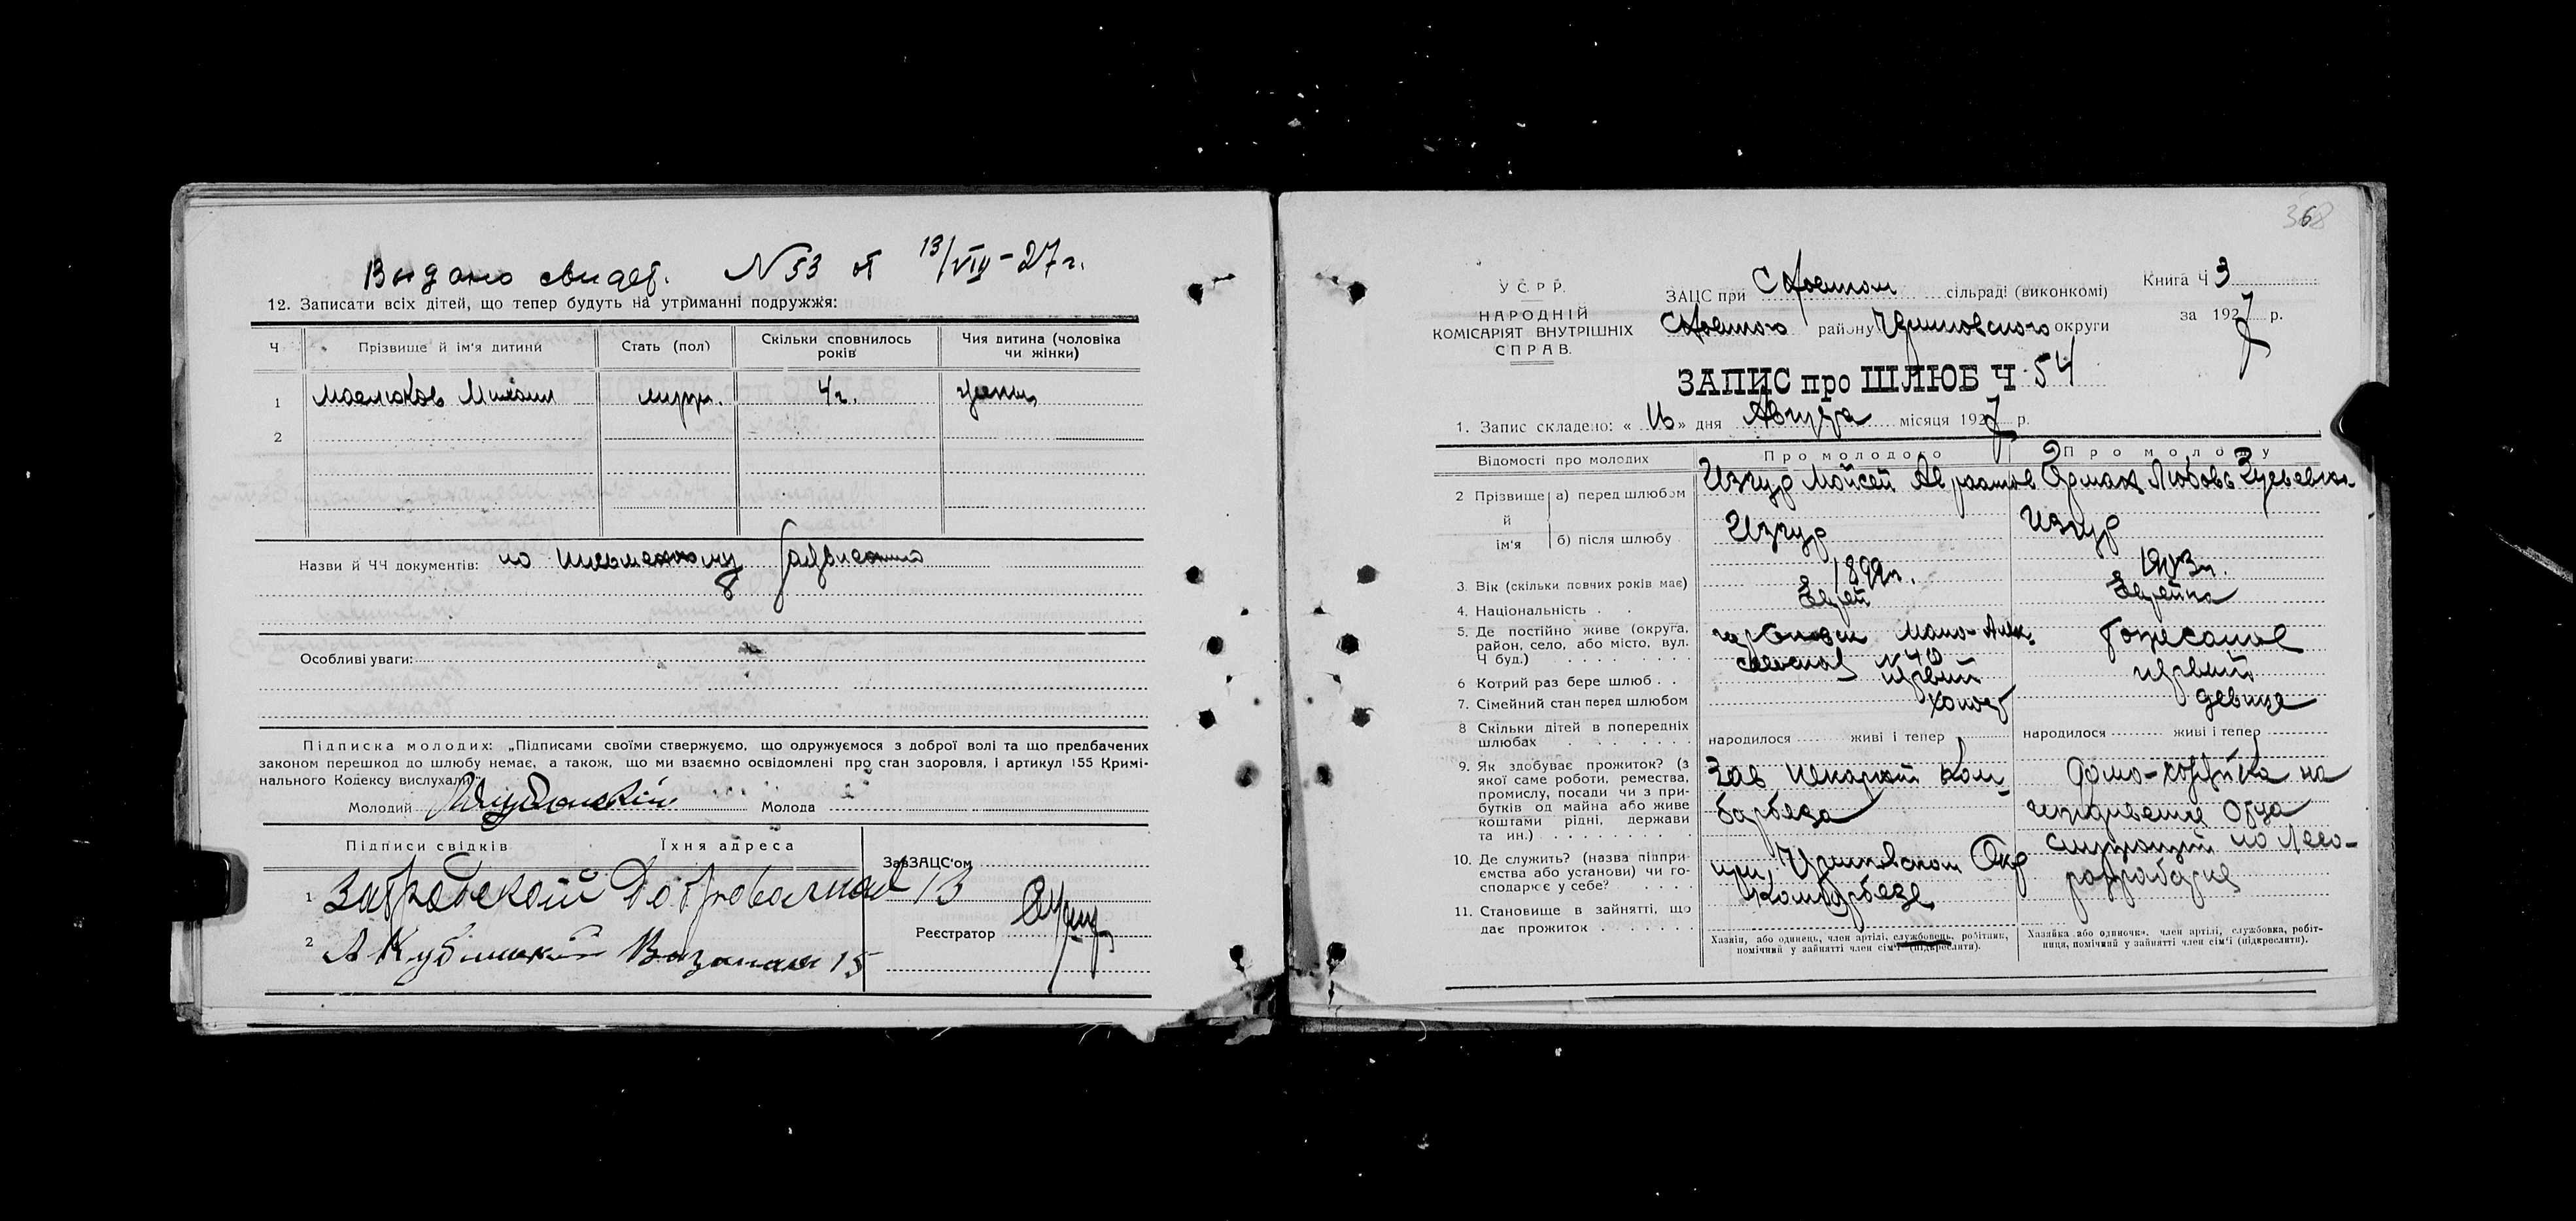 Выдано свидет. N 53 от 13/VIII-27г.
12. Записати всіх дітей, що тепер будуть на утриманні подружжя:
Ч Прізвище й ім'я дитини Стать (пол) Скільки сповнилось років Чия дитина (чоловіка чи жінки)
1 Михаил муж. 4г. жены
2
Назви й ЧЧ документів: по письменному заявлению
Особливі уваги:
Підписка молодих: „Підписами своїми стверджуємо, що одружуємося з доброї волі та що предбачених
законом перешкод до шлюбу немає, а також, що ми взаємно освідомлені про стан здоров'я, і артикул 155 Кримі-
нального Кодексу вислухали".
Молодий Молода
Підписи свідків Їхня адреса
ЗавЗАЦС'ом
1 13
Реєстратор
2 А Кубицкий Вокзальная 15
368
У.С.Р.Р.
НАРОДНІЙ
КОМІСАРІЯТ ВНУТРІШНІХ
СПРАВ.
ЗАЦС при сільраді (виконкомі)
району округи
Книга Ч 3
за 1927 р.
ЗАПИС про ШЛЮБ Ч 54
1. Запис складено: « 16 » дня Августа місяця 1927 р.
Відомості про молодих Про молодого Про молоду
2 Прізвище й ім'я а) перед шлюбом Изгур Мойсей Авраамов Ярмак Любовь Зусьевна
б) після шлюбу Изгур Изгур
3. Вік (скільки повних років має) 1899г. 1903г.
4. Національність . . Еврей Еврейка
5. Де постійно живе (округа,
район, село, або місто, вул.
Ч буд.) N 40
6 Котрий раз бере шлюб . . первый первый
7. Сімейний стан перед шлюбом холост девица
8 Скільки дітей в попередніх
шлюбах народилося живі і тепер народилося живі і тепер
9. Як здобуває прожиток? (з
якої саме роботи, ремества,
промислу, посади чи з при-
бутків од майна або живе
коштами рідні, держави
та ин.)
Зав пекарней ком-
барбеза
домо-хозяйка на
иждивении отца
служащий по Лесо-
разработке
10. Де служить? (назва підпри-
ємства або установи) чи го-
сподарює у себе?
при Окр
Комборбезе
11. Становище в зайнятті, що
дає прожиток
Хазяїн, або одинець, член артілі, службовець, робітник,
помічний у зайнятті член сім'ї (підкреслити).
Хазяйка або одиночка, член артілі, службовка, робіт-
ниця, помічний у зайнятті член сім'ї (підкреслити).